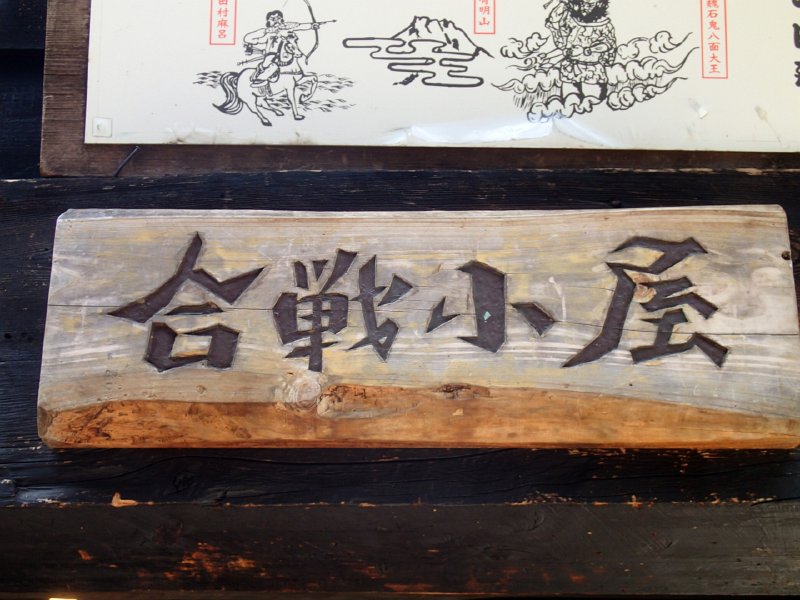 田村麻呂
有明山
魏石鬼八面大王
合戦小屋